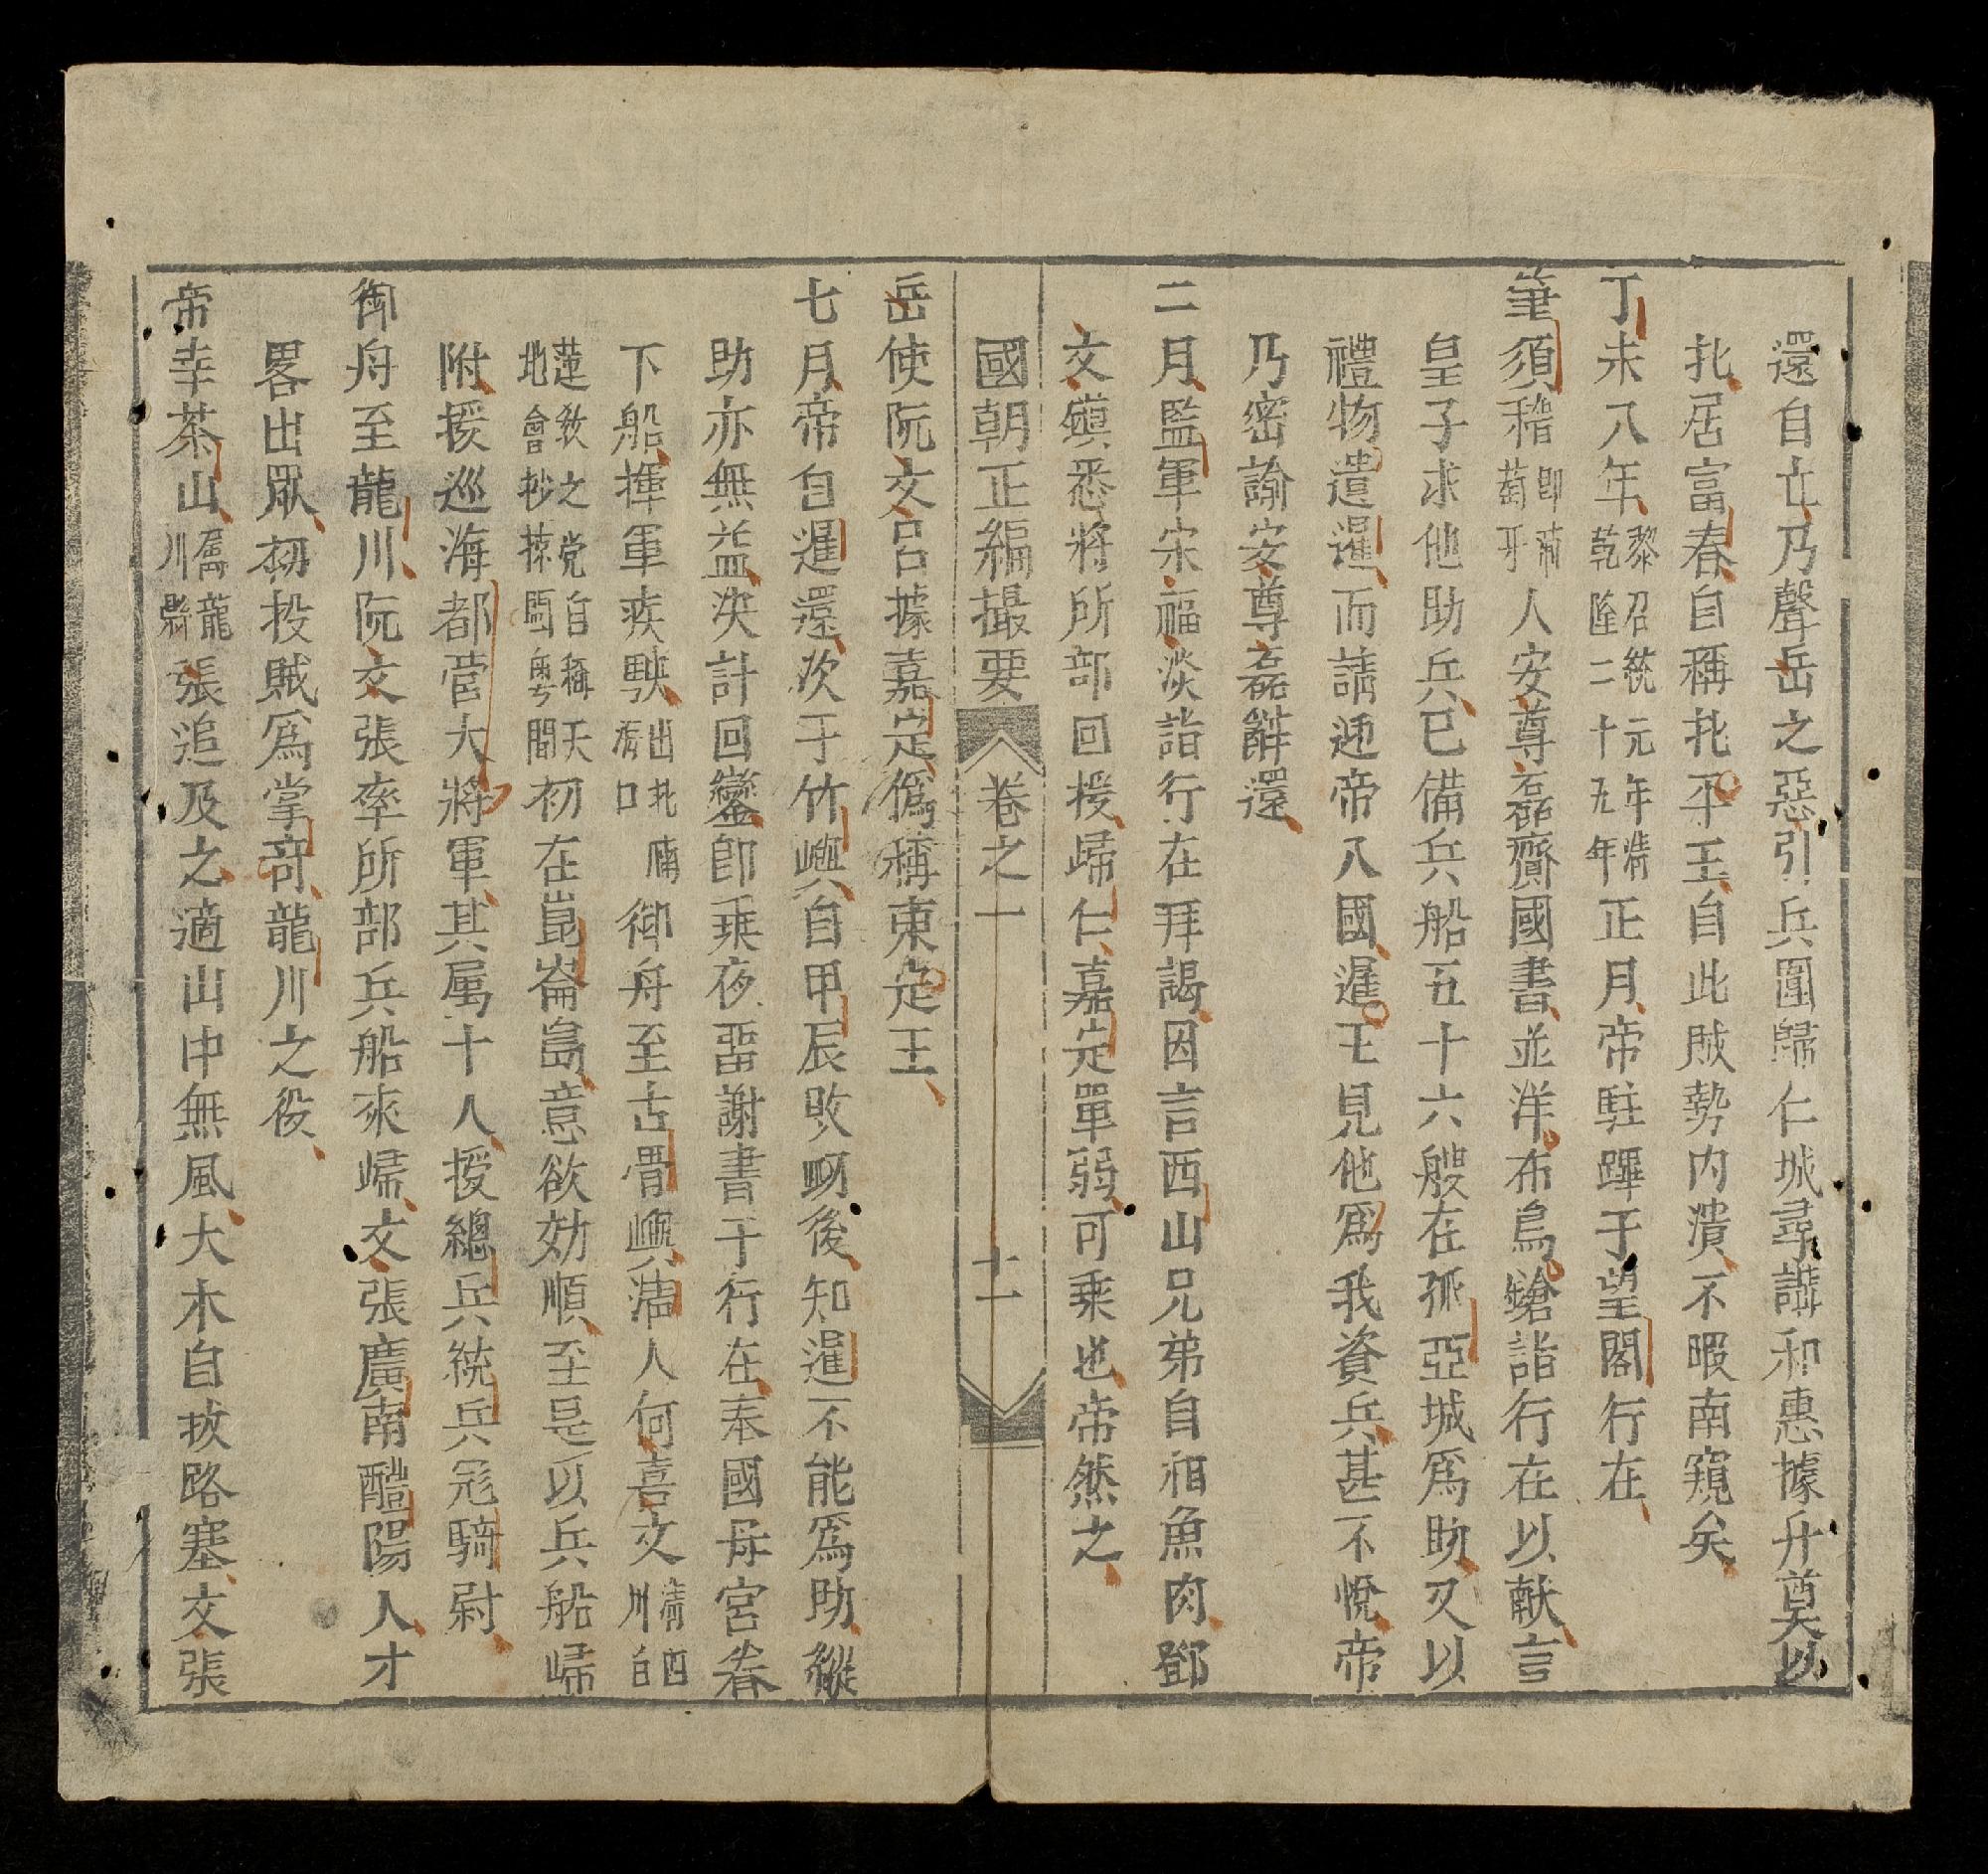 還自立乃聲岳之惡引兵圍歸仁城尋講和惠據升奠以
北居富春自稱北平王自此賊勢内潰不暇南窺矣
丁未八年黎召統元年清乾隆二十五年正月帝駐蹕于望閣行在
筆須稽即蒲萄牙人安尊磊齎國書並洋布鳥鎗詣行在以獻言
皇子求他助兵已備兵船五十六艘在孤亞城爲助又以
禮物遣暹而請迎帝入國暹王見他爲我資兵甚不悅帝
乃密諭安尊磊辭還
二月監軍宋福淡詣行在拜謁因言西山兄弟自相魚肉鄧
文鎮悉將所部回援歸仁嘉定單弱可乘也帝然之
國朝正編撮要 卷之一 十一
岳使阮文呂據嘉定僞稱東定王
七月帝自暹還次于竹嶼自甲辰敗衂後知暹不能爲助縱
助亦無益決計回鑾即乘夜畱謝書于行在奉國母宮眷
下船揮軍疾駛出北㵋湾口御舟至古骨嶼清人何喜文清四川白
蓮教之党自稱天地會抄掠閩粵間初在崑崙島意欲効順至是以兵船歸
附援巡海都營大將軍其属十人授總兵統兵飛騎尉
御舟至龍川阮文張率所部兵船來歸文張廣南醴陽人才
畧出眾初投賊爲掌奇龍川之役
帝幸茶山属龍川縣張追及之適山中無風大木自拔路塞文張